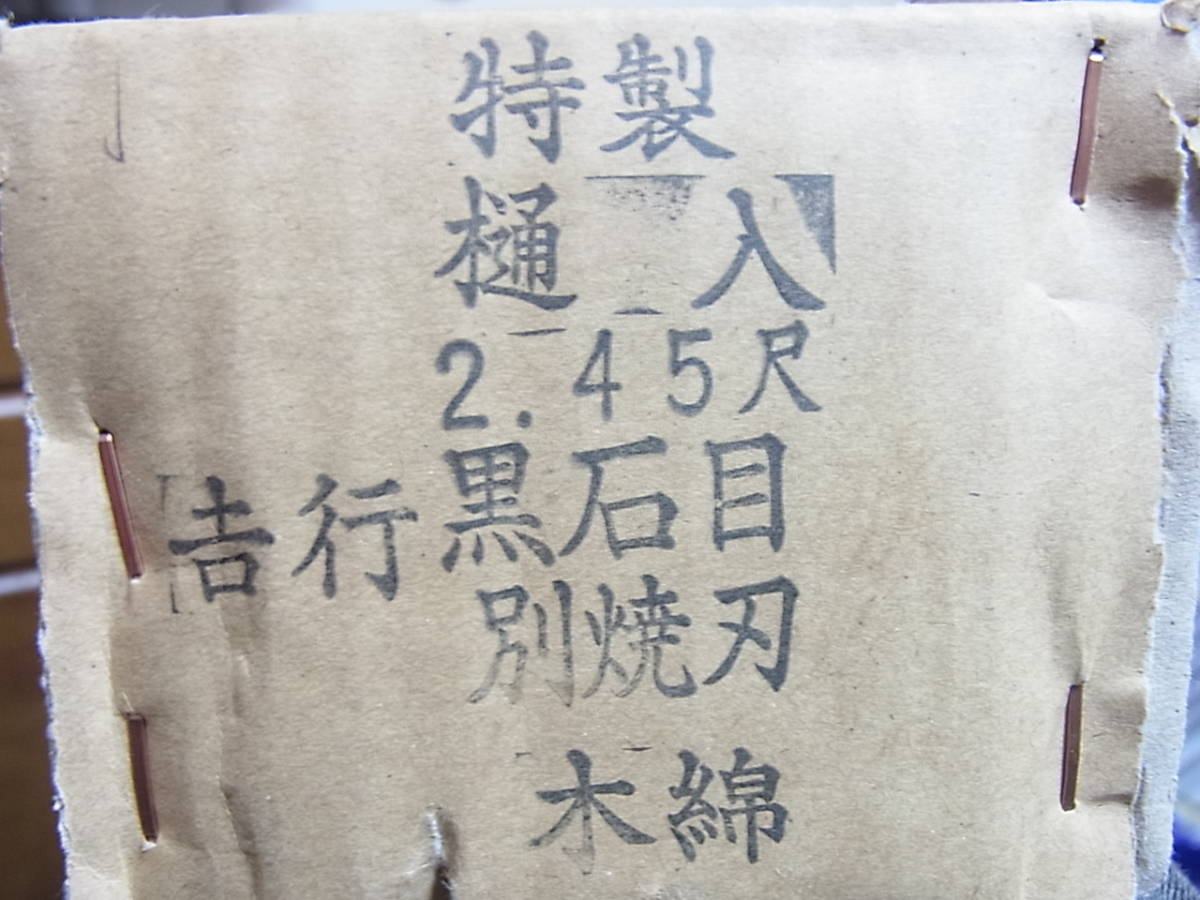 特製
樋 入
2.45尺
黒石目
𠮷行
別焼刃
木綿